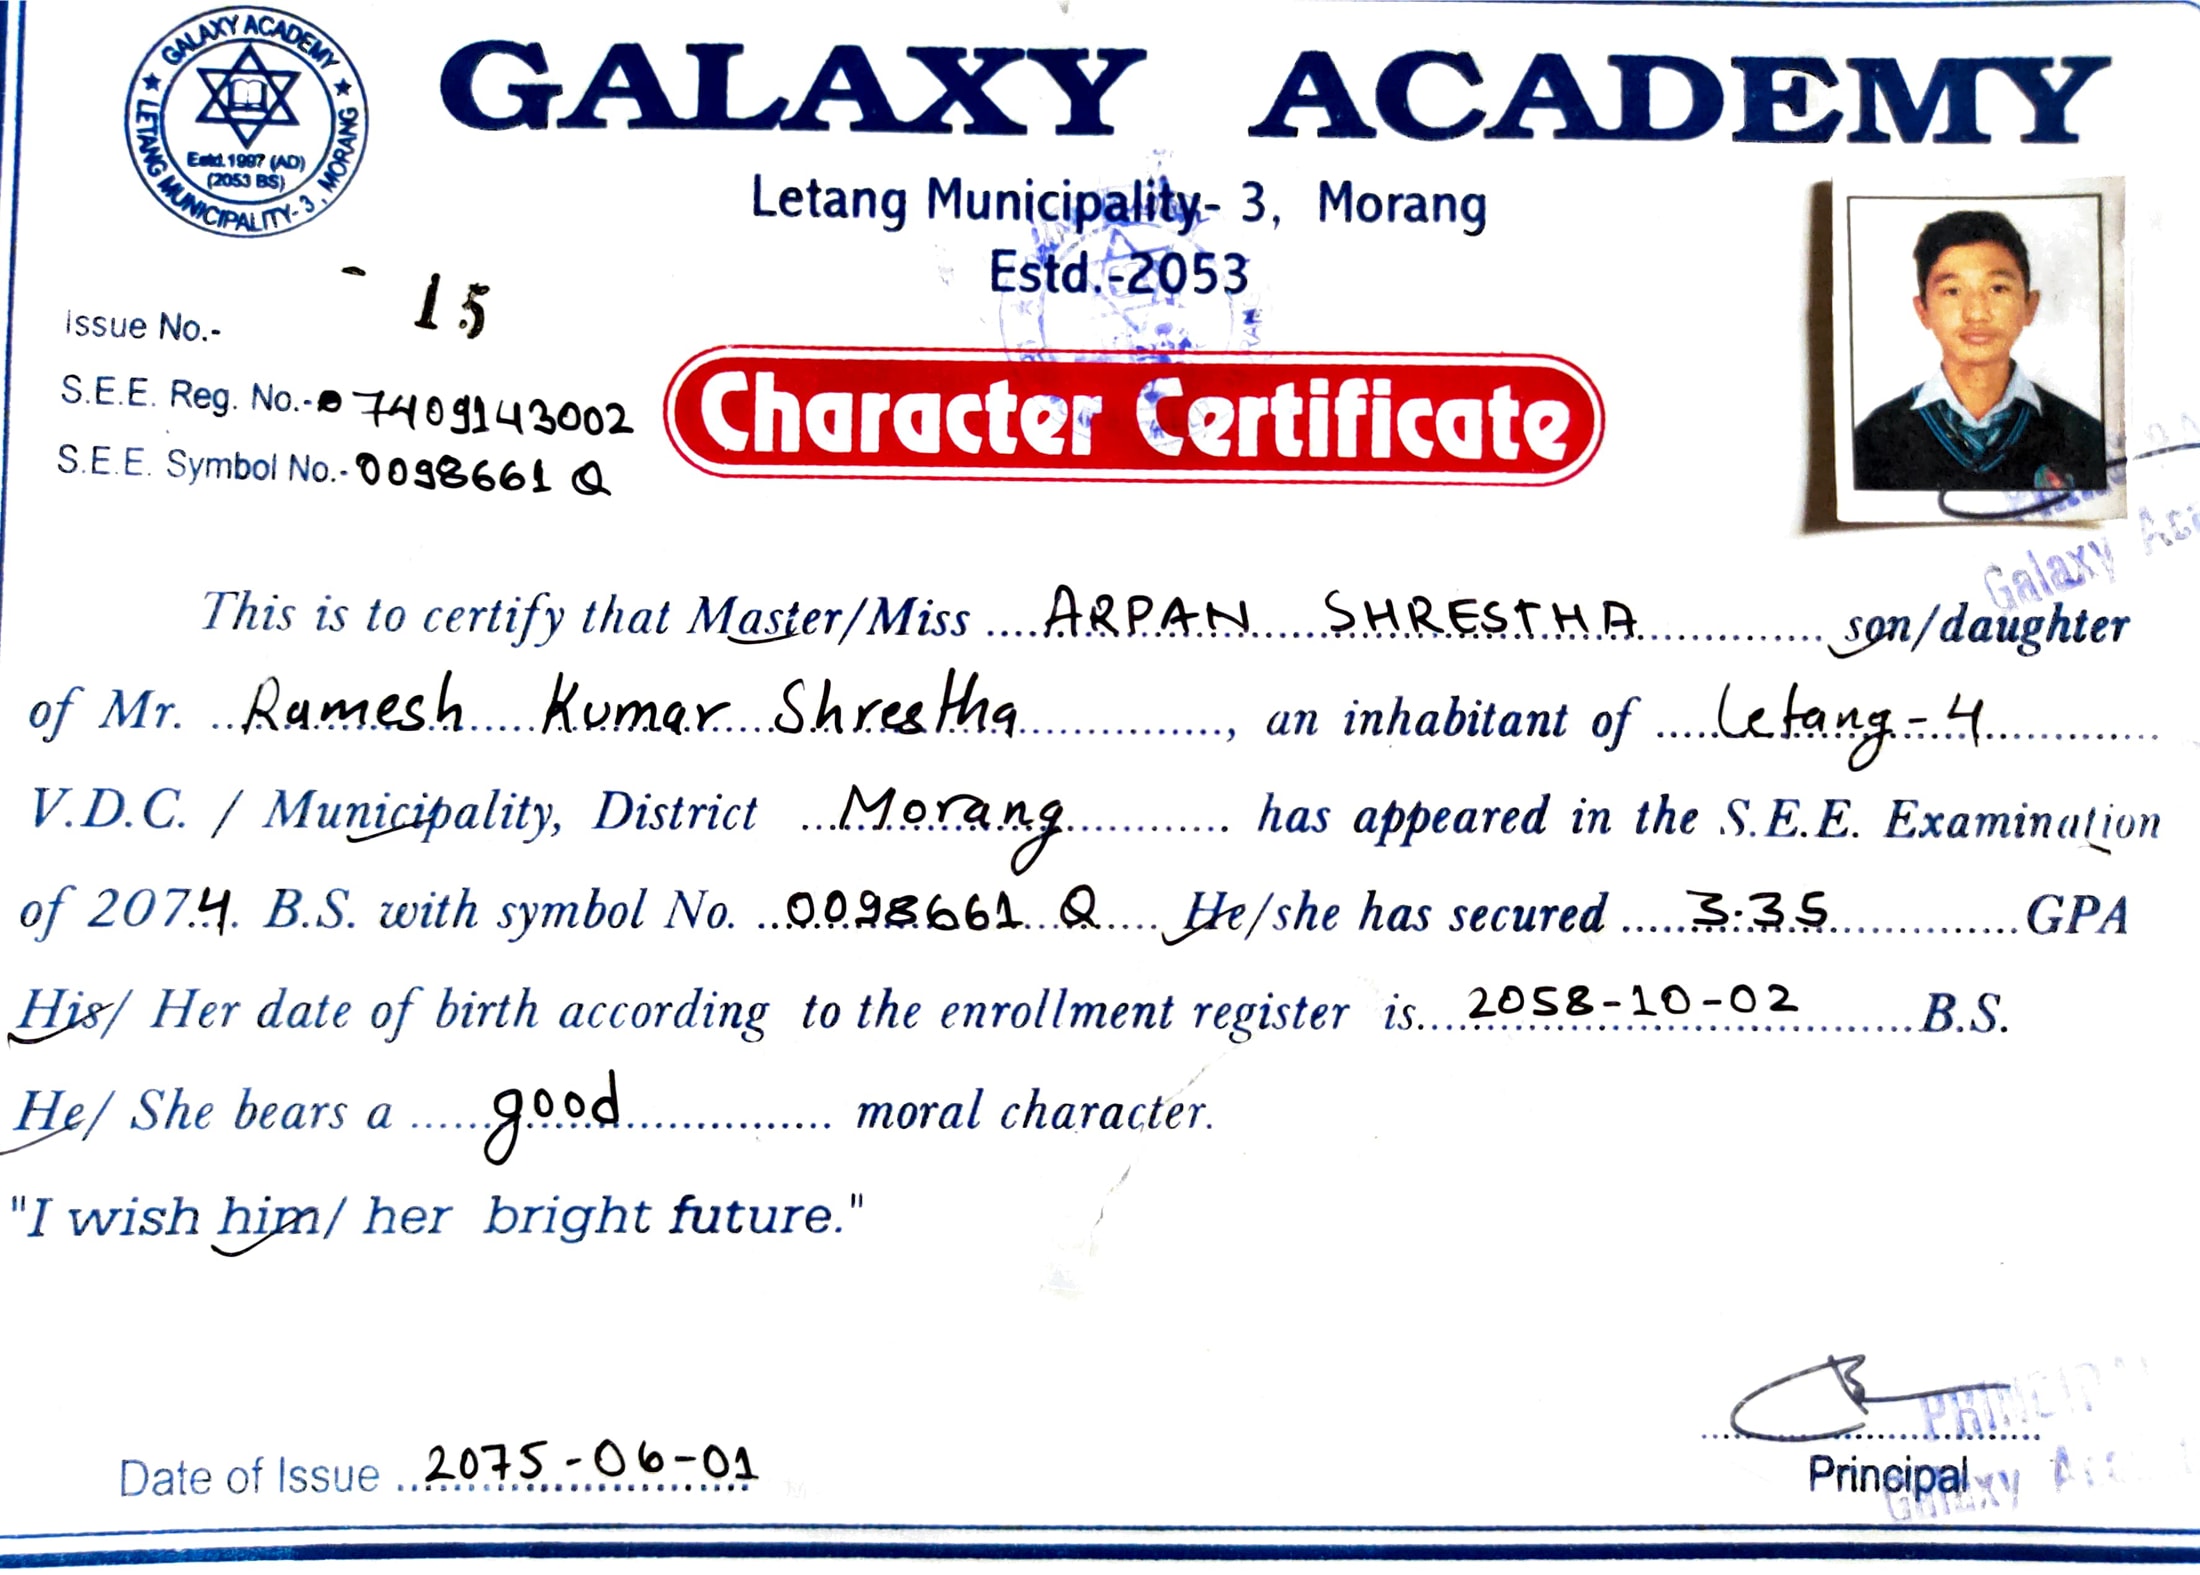 GALAXY ACADEMY
★ LETANG MUNICIPALITY- 3, MORANG ★
Estd. 1997 (AD)
(2053 BS)
GALAXY ACADEMY
Letang Municipality- 3, Morang
Estd.-2053
Issue No.- 15
S.E.E. Reg. No.-07409143002
S.E.E. Symbol No.-0098661 Q
Character Certificate
Galaxy
This is to certify that Master/Miss ....ARPAN SHRESTHA............ son/daughter
of Mr. ..Ramesh Kumar Shrestha............, an inhabitant of .....Letang-4............
V.D.C. / Municipality, District ...Morang............ has appeared in the S.E.E. Examination
of 207.4. B.S. with symbol No. ..0098661 Q.... He/she has secured .....3.35............GPA
His/ Her date of birth according to the enrollment register is....2058-10-02.......B.S.
He/ She bears a ......good.............. moral character.
"I wish him/ her bright future."
Date of Issue ..2075-06-01
PRINCIPAL
Principal
Galaxy